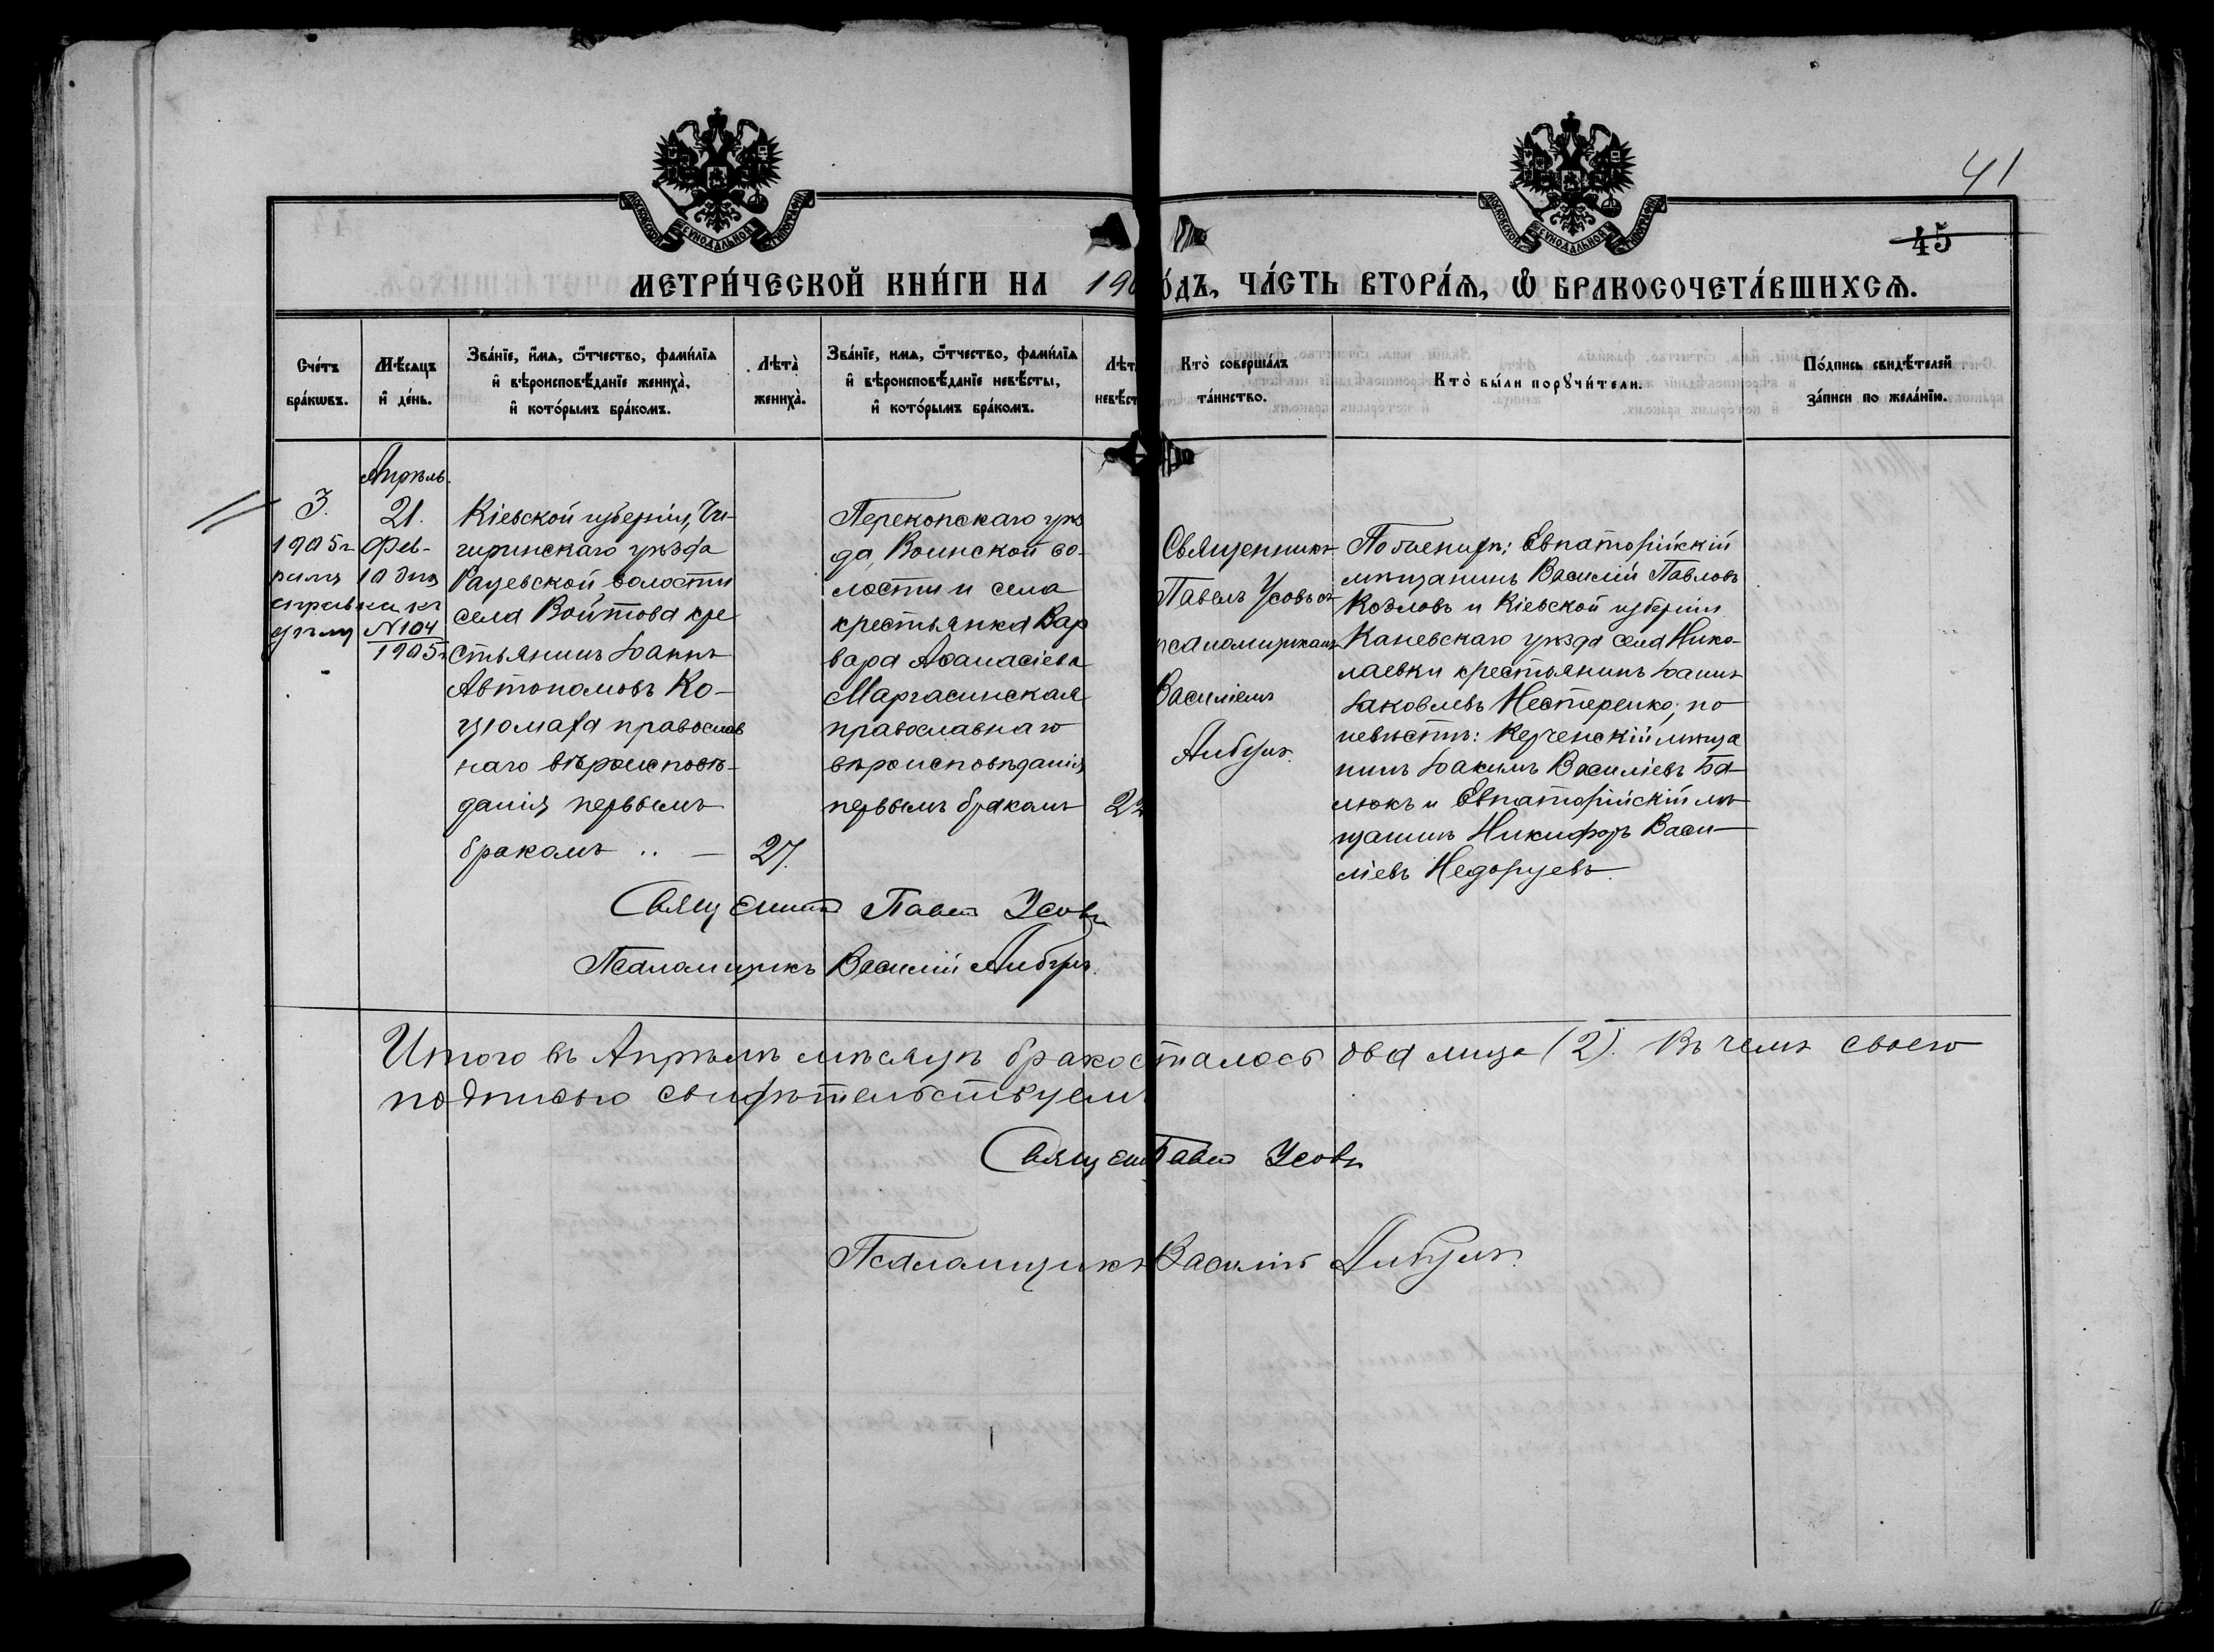 41
45
МОСКОВСКОЙ СѴНОДАЛЬНОЙ ТИПОГРАФІИ
МОСКОВСКОЙ СѴНОДАЛЬНОЙ ТИПОГРАФІИ
МЕТРИ́ЧЕСКОЙ КНИ́ГИ НА 190 О́ДЪ, ЧА́СТЬ ВТОРА́Ѧ, Ѽ БРАКОСОЧЕТА́ВШИХСѦ.
Сче́тъ
бра́кѡвъ.
Мѣ́сяцъ
и҆ де́нь.
Зва́нїе, и҆́мѧ, ѻ҆́тчество, фами́лїѧ
и҆ вѣроисповѣ́данїе жениха̀,
и҆ кото́рымъ бра́комъ.
Лѣта̀
жениха̀.
Зва́нїе, имѧ, ѻ҆́тчество, фами́лїѧ
и҆ вѣроисповѣ́данїе невѣ́сты,
и҆ кото́рымъ бра́комъ.
Лѣт
невѣст
Кто̀ соверша́лъ
та́инство.
Кто̀ бы́ли порꙋчи́тели.
По́дпись свидѣ́телей
за́писи по жела́нїю.
Апрѣль.
3.
1905 г
21.
Фев-
10 дня
N 104
1905 г
Кіевской губерніи, Чи-
гиринскаго уѣзда
Рацевской волости
села Войтова кре
стьянинъ Іоаннъ
Автономовъ Ко-
цюмаха православ
наго вѣроисповѣ-
данія первымъ
бракомъ .. —
27.
Перекопскаго уѣз
да, Воинской во-
лости и села
крестьянка Вар
вара Аѳанасіева
Маргасинская
православнаго
вѣроисповѣданія
первымъ бракомъ
22
Священникъ
Павелъ Усовъ съ
псаломщикомъ
Василіемъ
По женихѣ: Евпаторійскій
мѣщанинъ Василій Павловъ
Козловъ и Кіевской губерніи
Каневскаго уѣзда села Нико-
лаевки крестьянинъ Іоаннъ
Іаковлевъ Нестеренко; по
невѣстѣ: Керченскій мѣща
нинъ Іоакимъ Василіевъ Ба-
люкъ и Евпаторійскій мѣ-
щанинъ Никифоръ Васи-
ліевъ Недоруевъ.
Священникъ Павелъ Усовъ
Псаломщикъ Василій
Итого въ Апрѣлѣ мѣсяцѣ бракосталось два лица (2). Въ чемъ своею
подписью свидѣтельствуемъ
Священ Павелъ Усовъ
Псаломщикъ Василій